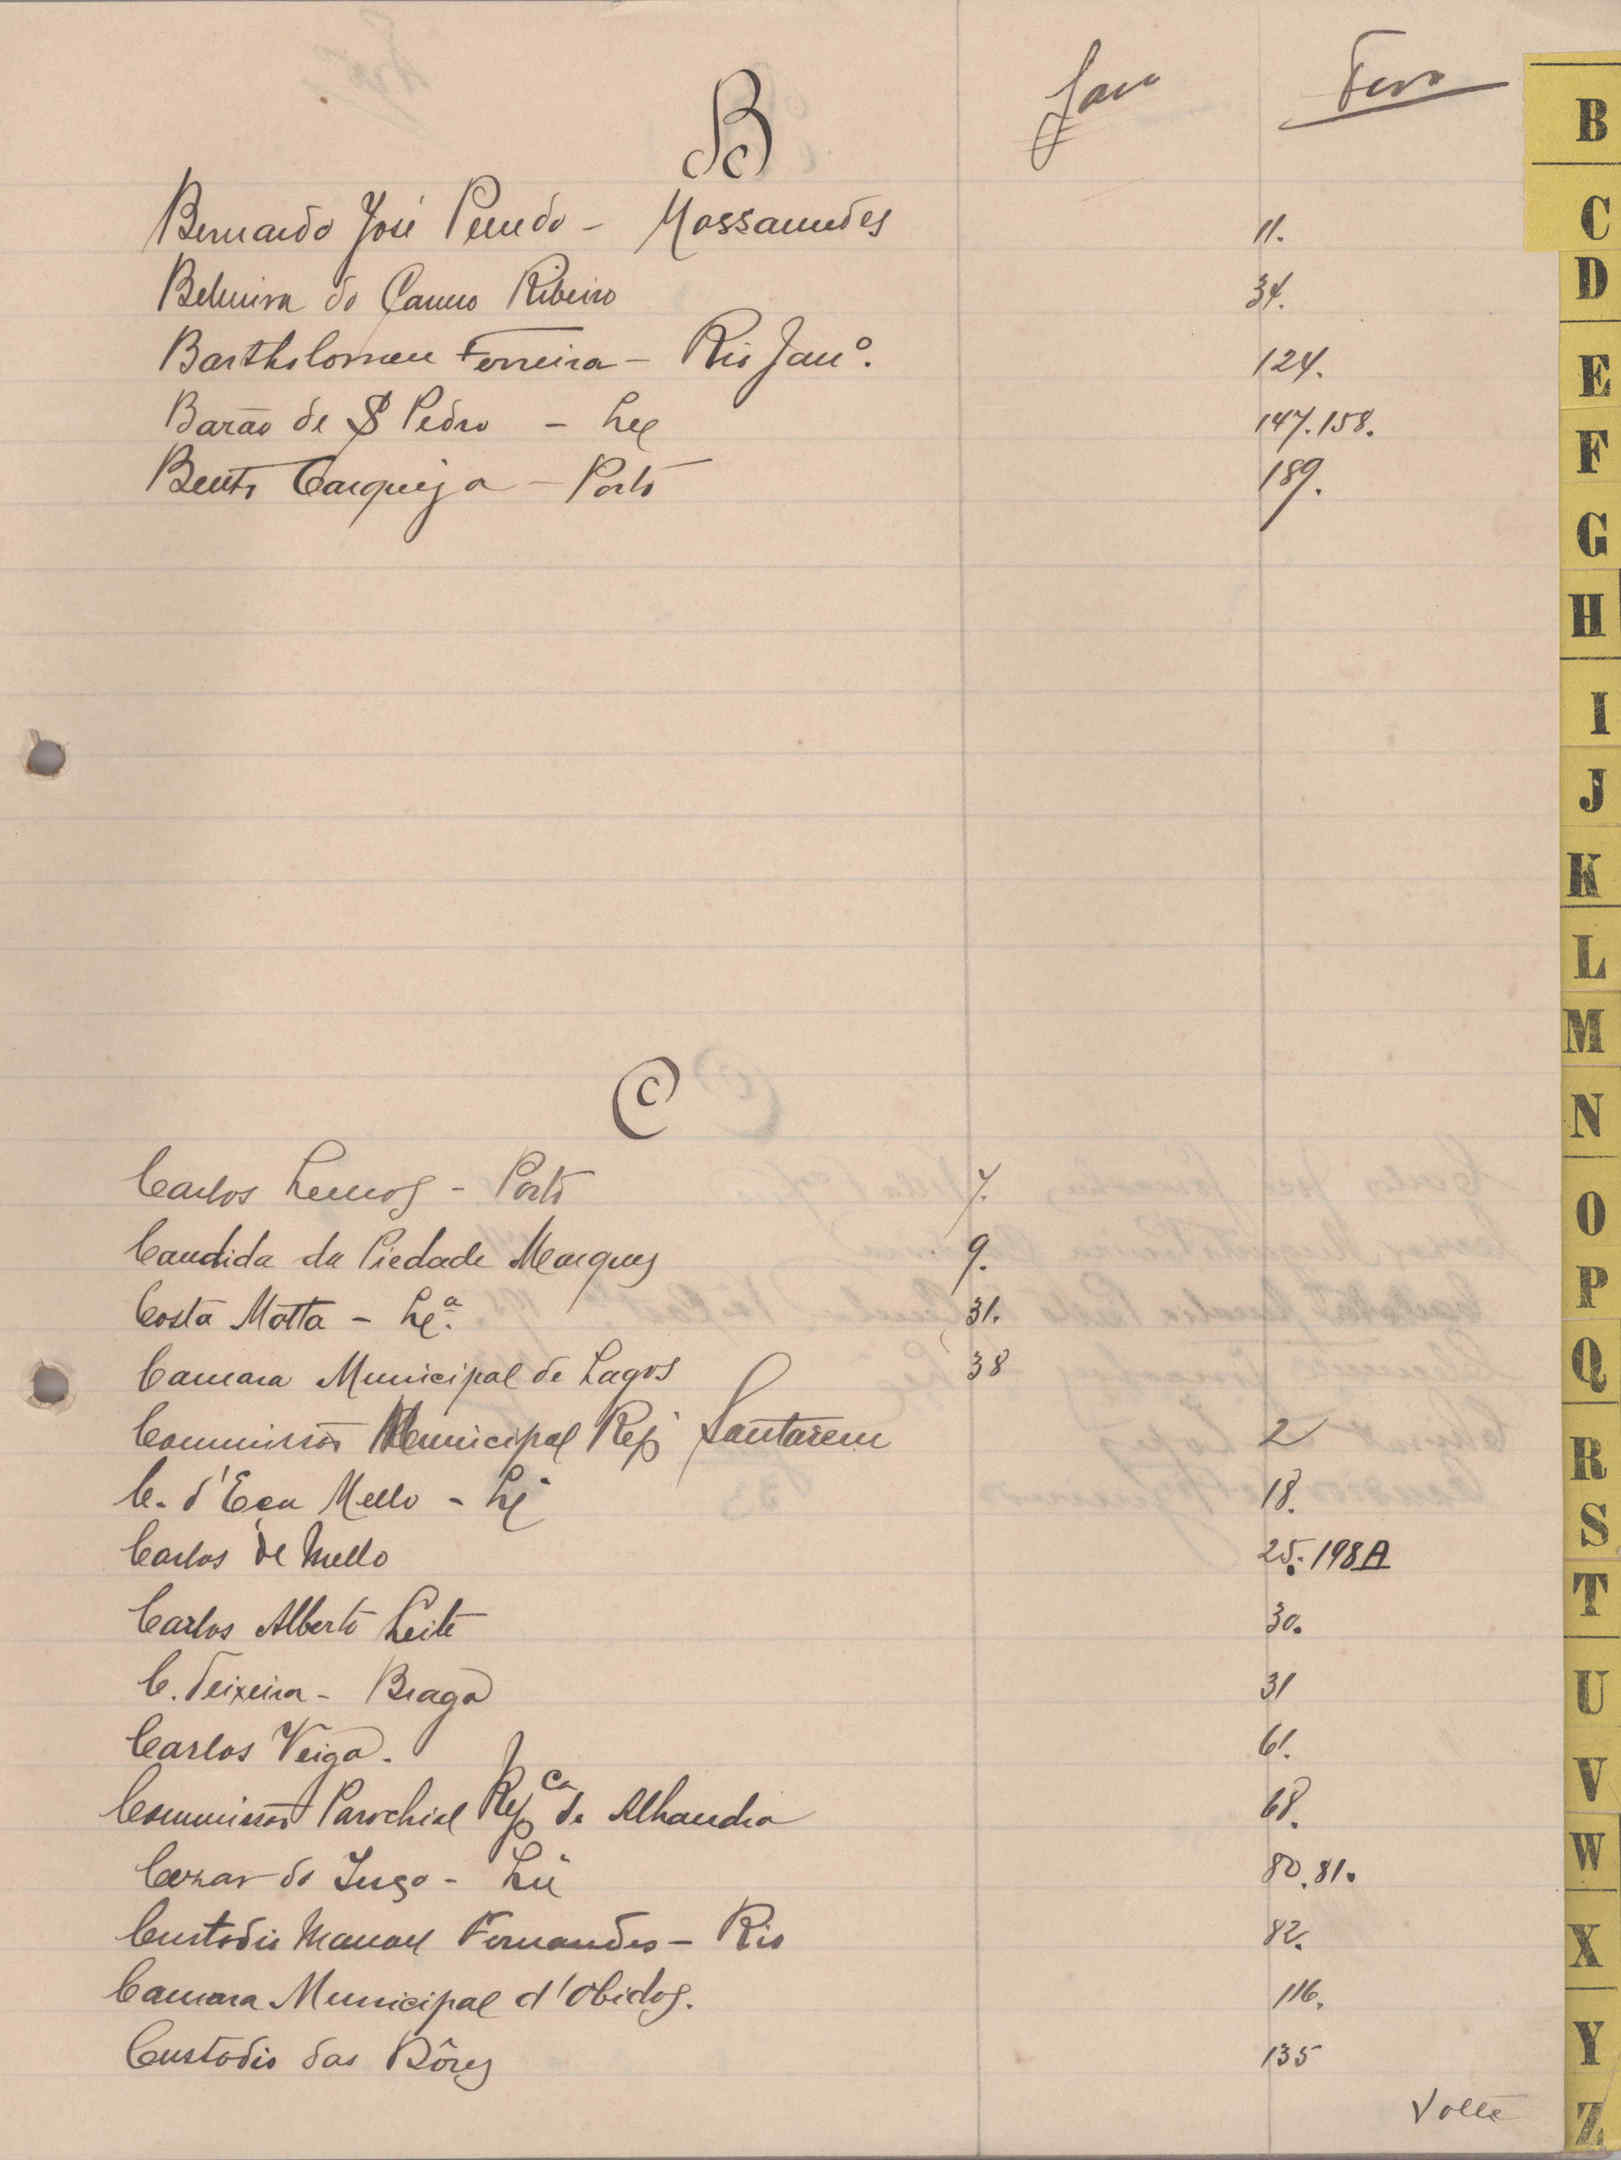 B Janº Fevº
Bernardo José Penedo - Mossamedes 11.
Belmira do Carmo Ribeiro 34.
Bartholomeu Ferreira - Rio Janº. 124.
Barão de S Pedro - Lxª 147.158.
Bento Carqueja - Porto 189.
C
Carlos Lemos - Porto 7.
Candida da Piedade Marques 9.
Costa Motta - Lxª. 31.
Camara Municipal de Lagos 38
Commissão Municipal Rep Santarem 2
C. d'Eça Mello - Lxª 18.
Carlos de Mello 25. 198A
Carlos Alberto Leite 30.
C. Teixeira - Braga 31
Carlos Veiga. 61.
Commissão Parochial Repca de Alhandra 68.
Cezar do - Lxª 80.81.
Custodio Manoel Fernandes - Rio 82.
Camara Municipal d'Obidos. 116.
Custodio das Dôres 135
Volte
B
C
D
E
F
G
H
I
J
K
L
M
N
O
P
Q
R
S
T
U
V
W
X
Y
Z